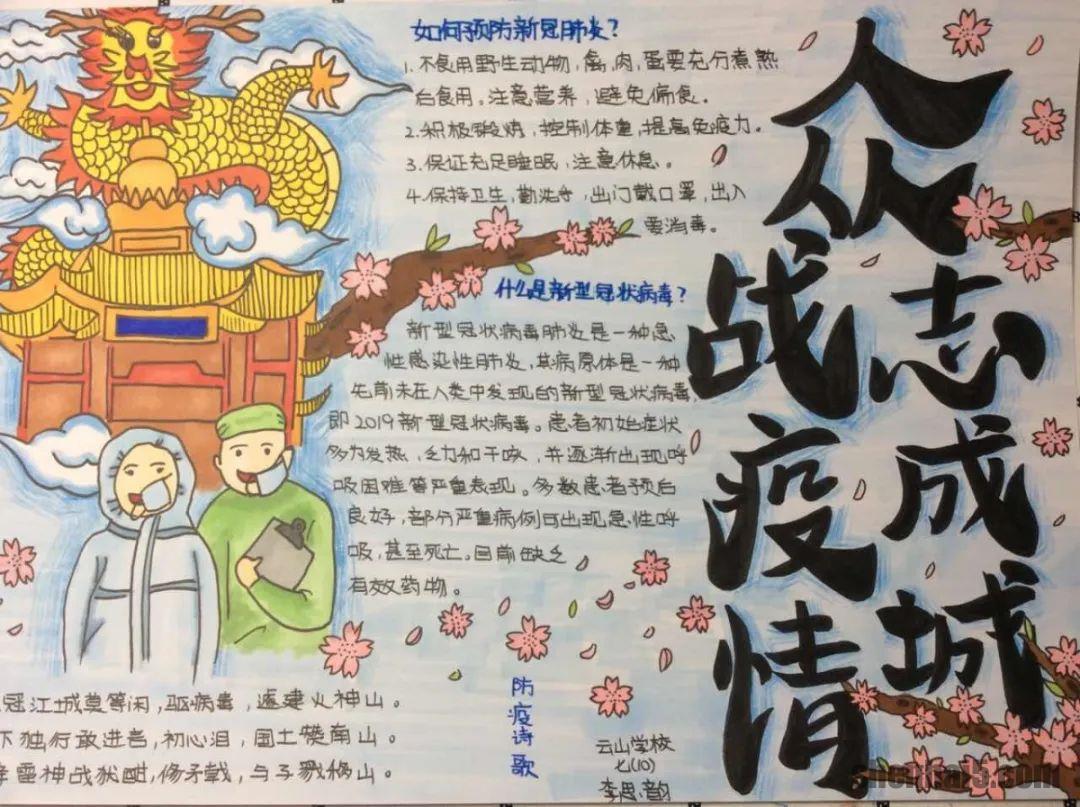 众志成城
战疫情
如何预防新冠肺炎？
1. 不食用野生动物，禽，肉，蛋要充分煮熟
后食用。注意营养，避免偏食。
2. 积极锻炼，控制体重，提高免疫力。
3. 保证充足睡眠，注意休息。
4. 保持卫生，勤洗手，出门戴口罩，出入
要消毒。
什么是新型冠状病毒？
新型冠状病毒肺炎是一种急
性感染性肺炎，其病原体是一种
先前未在人类中发现的新型冠状病毒，
即2019新型冠状病毒。患者初始症状
多为发热，乏力和干咳，并逐渐出现呼
吸困难等严重表现。多数患者预后
良好，部分严重病例可出现急性呼
吸，甚至死亡。目前缺乏
有效药物。
防疫诗歌
冠江城莫等闲，驱病毒，速建火神山。
独行敢进言，初心泪，国士樊南山。
雷神战犹酣，修矛戟，与子戮祸山。
云山学校
七(10)
李思韵